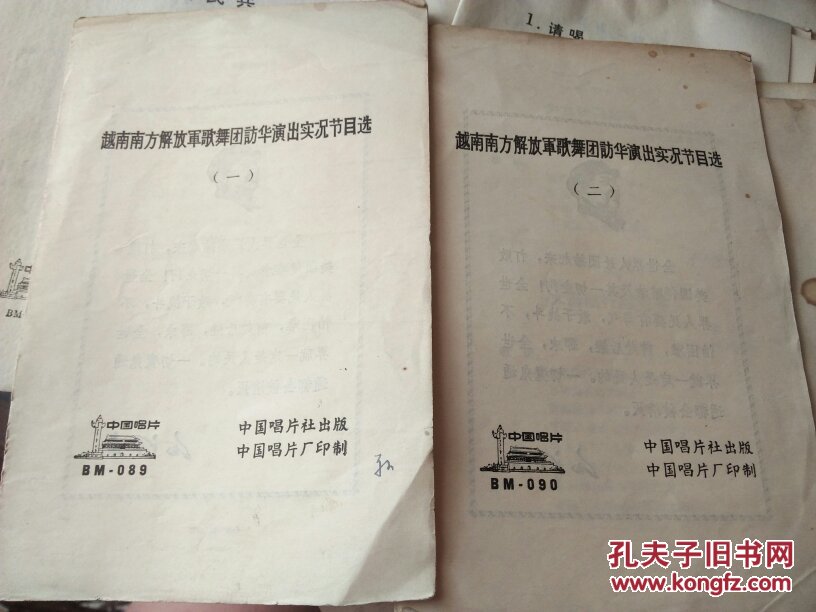 越南南方解放軍歌舞团訪华演出实况节目选
（一）
中国唱片
BM-089
中国唱片社出版
中国唱片厂印制
越南南方解放軍歌舞团訪华演出实况节目选
（二）
中国唱片
BM-090
中国唱片社出版
中国唱片厂印制
1.请喝
BM
孔夫子旧书网
www.kongfz.com